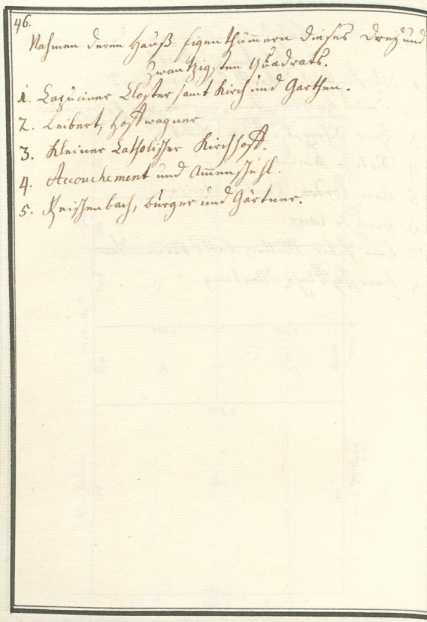 46.
Nahmen deren Hauß Eigenthümmern dieses Drey und
zwantzigsten Quadrats.
1. Capuciner Closter samt Kirch und Garthen.
2. Leibert, Hoffwagner
3. Kleiner Catholischer Kirchhoff.
4. Accouchement und Ammenschuhl.
5. Reichenbach, burger und Gärtner.